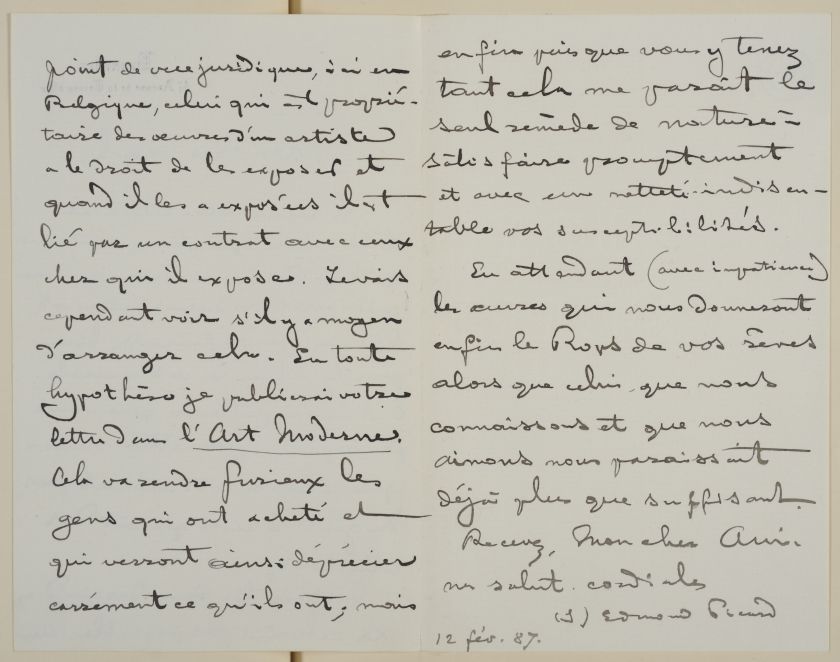 point de vue juridique, ici en
Belgique, celui qui est proprié-
taire des œuvres d'un artiste
a le droit de les exposer et
quand il les a exposées il est
lié par un contrat avec ceux
chez qui il expose. Je vais
cependant voir s'il y a moyen
d'arranger cela. En toute
hypothèse je publierai votre
lettre dans l'Art Moderne.
Cela va rendre furieux les
gens qui ont acheté et
qui verront ainsi déprécier
carrément ce qu'ils ont; mais
enfin puisque vous y tenez
tant cela me paraît le
seul remède de nature à
satisfaire promptement
et avec une netteté indiscu-
table vos susceptibilités.
En attendant (avec impatience)
les œuvres qui nous donneront
enfin le Rops de vos rêves
alors que celui que nous
connaissons et que nous
aimons nous paraissait
déjà plus que suffisant.
Recevez, Mon cher Ami.
un salut cordiales
(S) Edmond Picard
12 fév. 87.